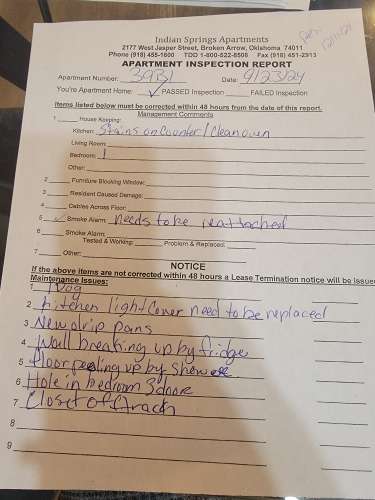 Indian Springs Apartments
2177 West Jasper Street, Broken Arrow, Oklahoma 74011
Phone (918) 455-1600 TDD 1-800-522-8506 Fax (918) 451-2913
APARTMENT INSPECTION REPORT
Apartment Number: 39B1 Date: 9/23/24
You're Apartment Home: ✓ PASSED Inspection FAILED Inspection
Items listed below must be corrected within 48 hours from the date of this report.
Management Comments
1 House Keeping:
Kitchen: Stains on Counter / Clean oven
Living Room:
Bedroom: 1
Other:
2 Furniture Blocking Window:
3 Resident Caused Damage:
4 Cables Across Floor:
5 ✓ Smoke Alarm: needs to be reattached
6 Smoke Alarm:
Tested & Working: Problem & Replaced:
7 Other:
NOTICE
If the above items are not corrected within 48 hours a Lease Termination notice will be issued
Maintenance Issues:
1
2 Kitchen light cover need to be replaced
3 New drip pans
4 Wall breaking up by fridge
5 floor peeling up by shower
6 Hole in bedroom 3 door
7 Closet off track
8
9